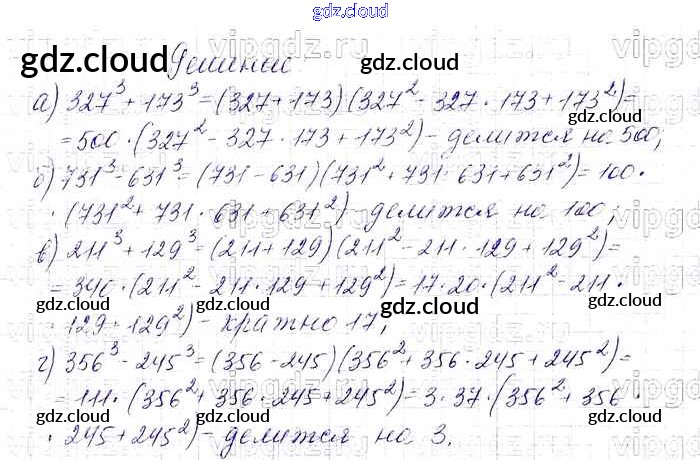 gdz.cloud
gdz.cloud Решение gdz.cloud
vipgdz.ru
а) 327³ + 173³ = (327 + 173) (327² - 327 · 173 + 173²) =
= 500 · (327² - 327 · 173 + 173²) - делится на 500;
б) 731³ - 631³ = (731 - 631) (731² + 731 · 631 + 631²) = 100 ·
· (731² + 731 · 631 + 631²) делится на 100;
в) 211³ + 129³ = (211 + 129) (211² - 211 · 129 + 129²) =
gdz.cloud gdz.cloud
= 340 · (211² - 211 · 129 + 129²) = 17 · 20 · (211² - 211 ·
gdz.cloud gdz.cloud gdz.cloud
· 129 + 129²) - кратно 17;
г) 356³ - 245³ = (356 - 245) (356² + 356 · 245 + 245²) =
= 111 · (356² + 356 · 245 + 245²) = 3 · 37 · (356² + 356 ·
gdz.cloud gdz.cloud gdz.cloud
· 245 + 245²) - делится на 3.